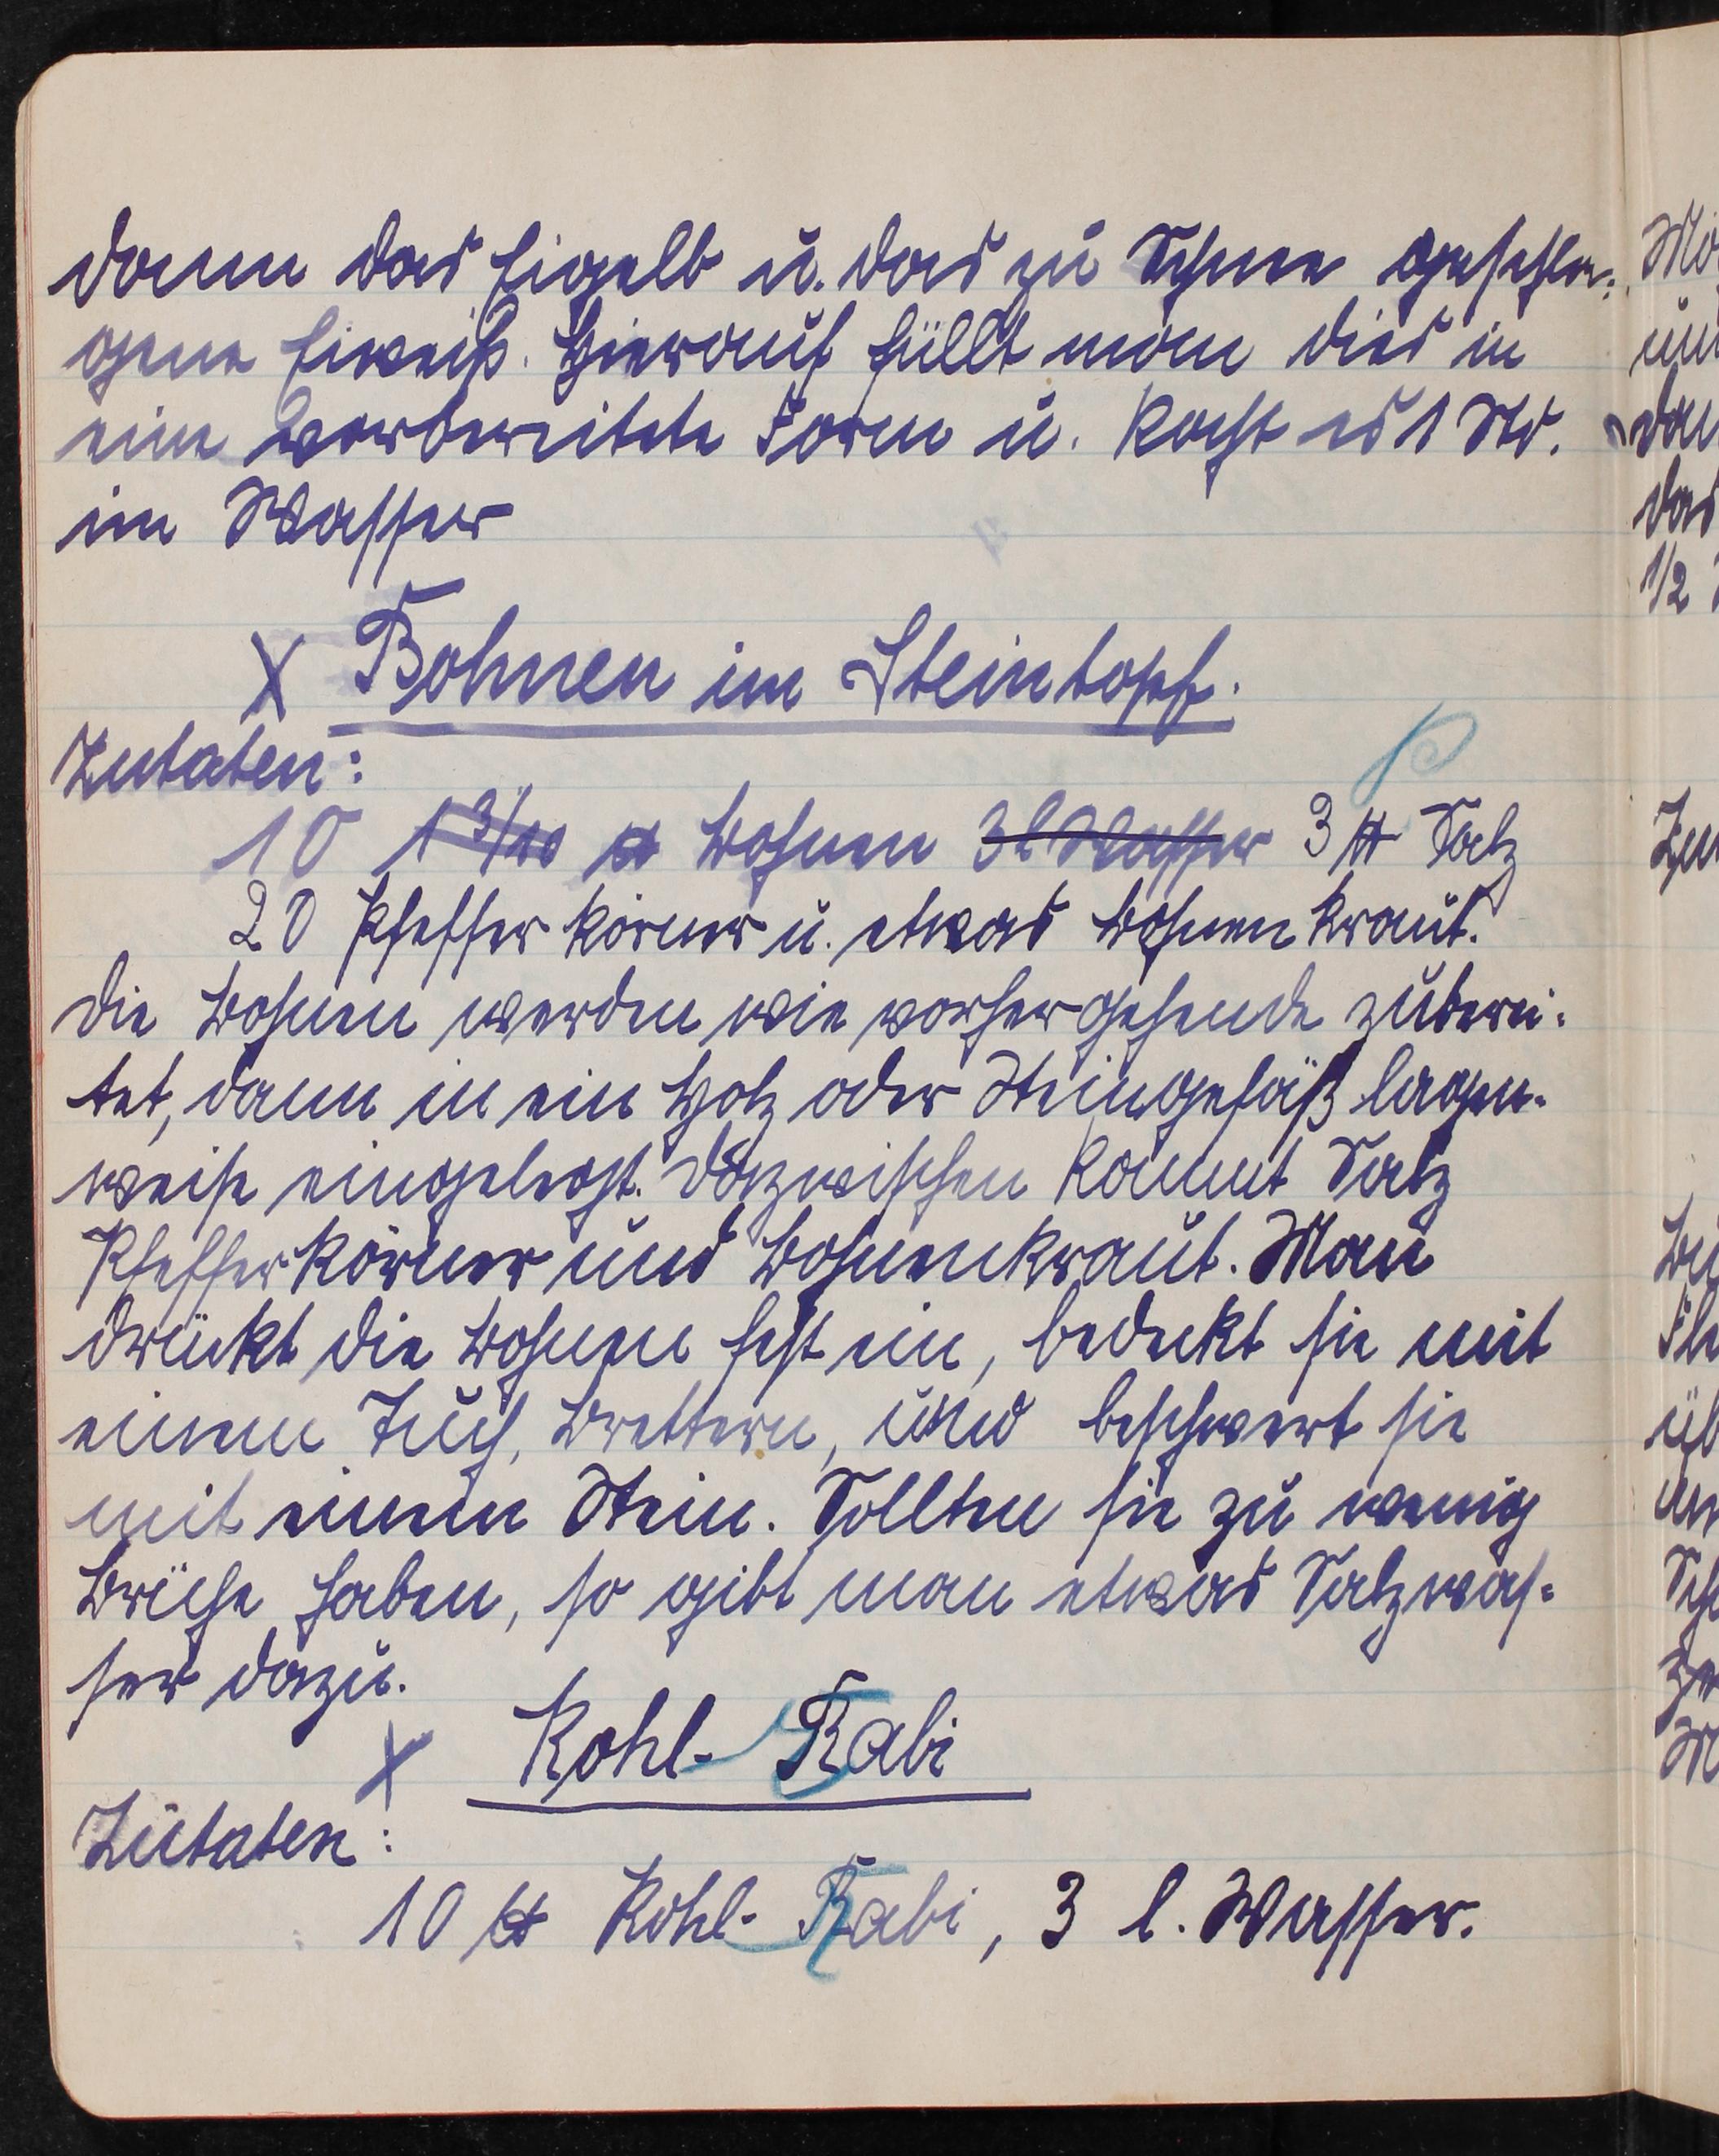 dann das Eigelb u. das zu Schnee geschla-
gene Eiweiß. Hierauf füllt man dies in
eine vorbereitete Form u. kocht es 1 Std.
im Wasser
X Bohnen im Steintopf.
Zutaten:
10 1 3/10 ℔ Bohnen 3 l Wasser 3 ℔ Salz
20 Pfefferkörner u. etwas Bohnenkraut.
Die Bohnen werden wie vorhergehende zuberei-
tet, dann in ein Holz oder Steingefäß lagen-
weise eingelegt. Dazwischen kommt Salz
Pfefferkörner und Bohnenkraut. Man
drückt die Bohnen fest ein, bedeckt sie mit
einem Tuch, Brettern, und beschwert sie
mit einem Stein. Sollten sie zu wenig
Brühe haben, so gibt man etwas Salzwas-
ser dazu.
X Kohl-Rabi
Zutaten:
10 ℔ Kohl-Rabi, 3 l. Wasser.